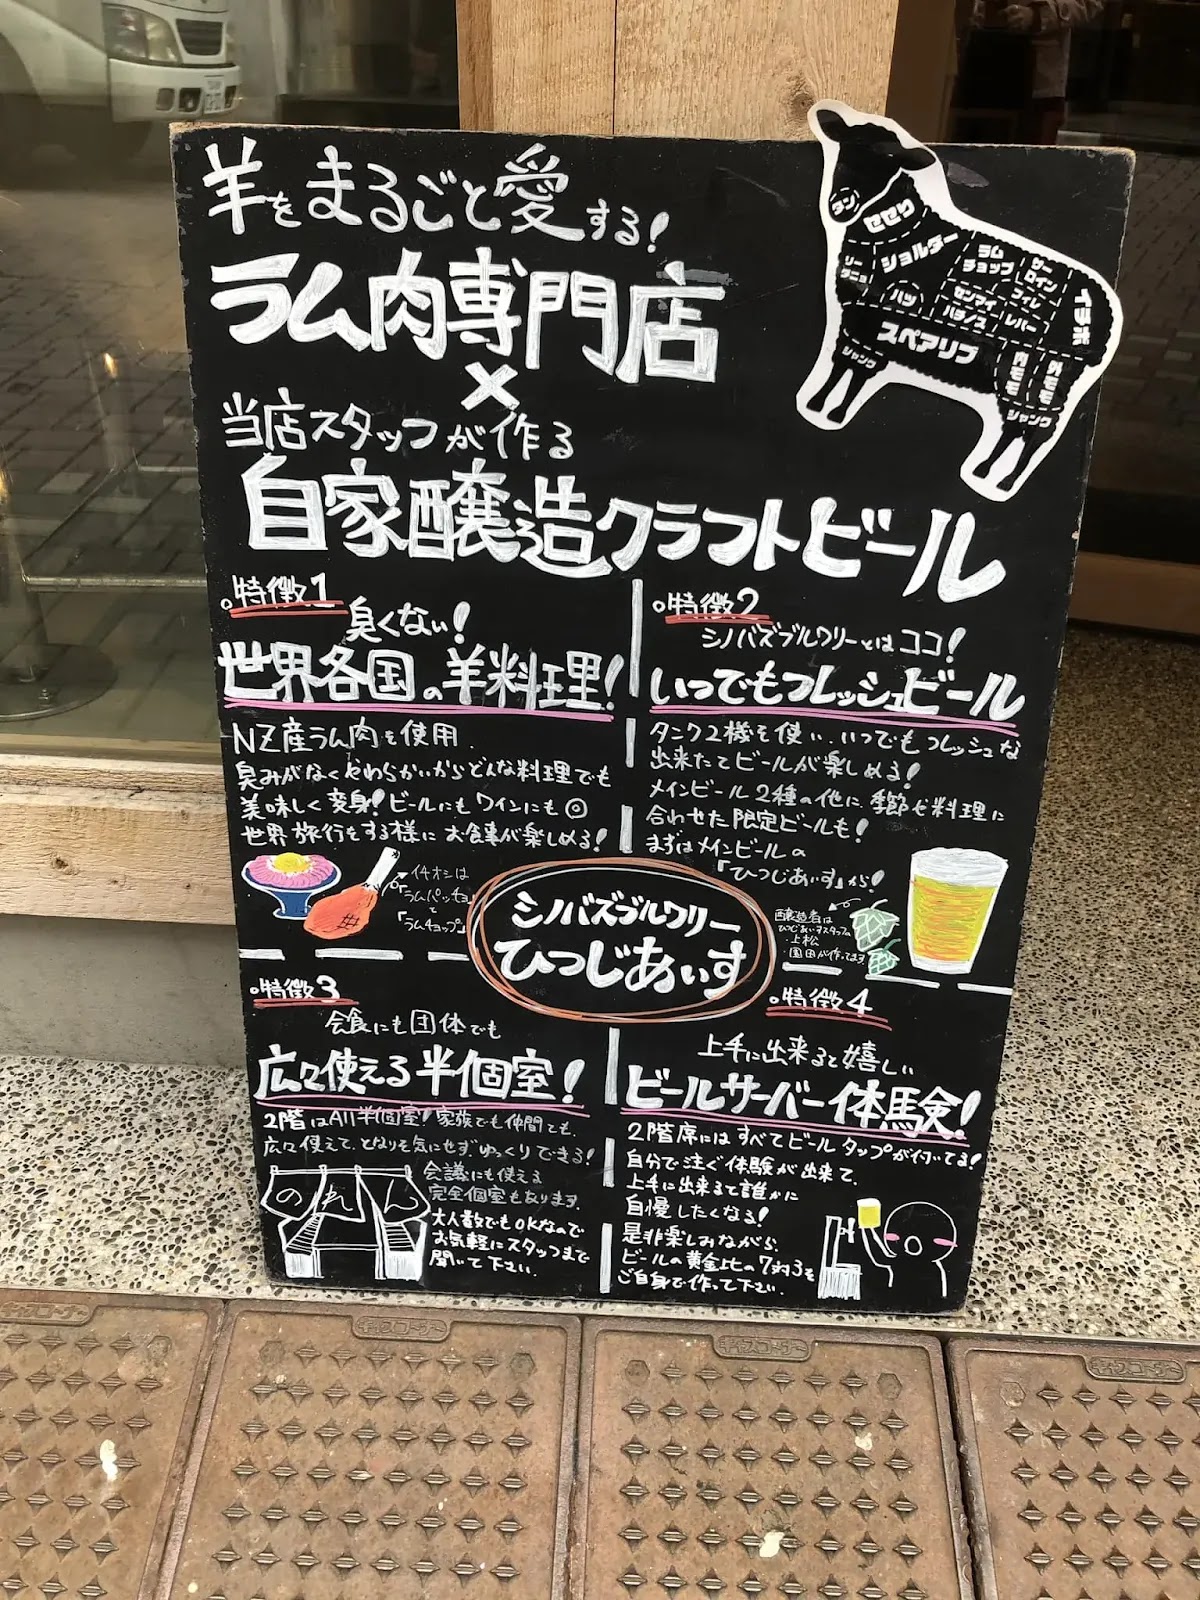 羊をまるごと愛する!
ラム肉専門店
×
当店スタッフが作る
自家醸造クラフトビール
タン
セセリ
ショルダー
ラム
チョップ
サー
ロイン
フィレ
イチボ
ハツ
センマイ
ハチノス
レバー
スペアリブ
内モモ
外モモ
シャンク
シャンク
特徴1
臭くない!
世界各国の羊料理!
NZ産ラム肉を使用
臭みがなくやわらかいからどんな料理でも
美味しく変身!ビールにもワインにも◎
世界旅行をする様にお食事が楽しめる!
イチオシは
「ラムパッチョ」
と
「ラムチョップ」
特徴2
シノバズブルワリーとはココ!
いつでもフレッシュビール
タンク2機を使い、いつでもフレッシュな
出来たてビールが楽しめる!
メインビール2種の他に季節や料理に
合わせた限定ビールも!
まずはメインビールの
「ひつじあいす」から!
醸造者は
ひつじあいすスタッフ
上松
園田が作ってます
シノバズブルワリー
ひつじあいす
特徴3
会食にも団体でも
広々使える半個室!
2階はAll半個室!家族でも仲間でも、
広々使えて、となりを気にせず、ゆっくりできる!
のれん
会議にも使える
完全個室もあります。
大人数でもOKなので
お気軽にスタッフまで
聞いて下さい。
特徴4
上手に出来ると嬉しい
ビールサーバー体験!
2階席にはすべてビールタップが付いてる!
自分で注ぐ体験が出来て、
上手に出来ると誰かに
自慢したくなる!
是非楽しみながら、
ビールの黄金比の7対3を
ご自身で作って下さい。
キャスコーナー
キャスコーナー
キャスコーナー